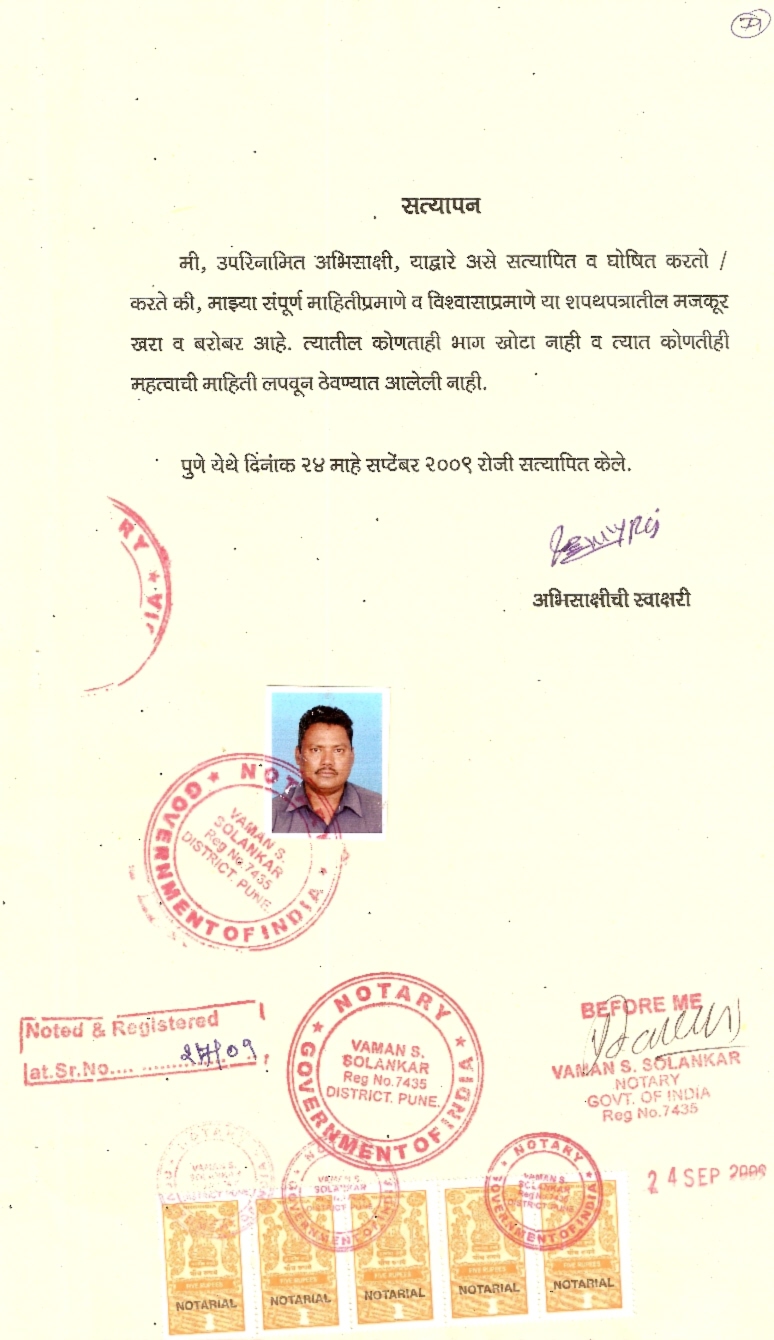 सत्यापन
मी, उपरिनामित अभिसाक्षी, याद्वारे असे सत्यापित व घोषित करतो /
करते की, माझ्या संपूर्ण माहितीप्रमाणे व विश्वासाप्रमाणे या शपथपत्रातील मजकूर
खरा व बरोबर आहे. त्यातील कोणताही भाग खोटा नाही व त्यात कोणतीही
महत्वाची माहिती लपवून ठेवण्यात आलेली नाही.
पुणे येथे दिनांक २४ माहे सप्टेंबर २००९ रोजी सत्यापित केले.
अभिसाक्षीची स्वाक्षरी
NOTARY
VAMAN S.
SOLANKAR
Reg No.7435
DISTRICT. PUNE
GOVERNMENT OF INDIA
Noted & Registered
at.Sr.No....
NOTARY
VAMAN S.
SOLANKAR
Reg No.7435
DISTRICT. PUNE.
GOVERNMENT OF INDIA
BEFORE ME
VAMAN S. SOLANKAR
NOTARY
GOVT. OF INDIA
Reg No.7435
24 SEP 2009
NOTARY
VAMAN S.
SOLANKAR
GOVERNMENT OF INDIA
NOTARIAL
NOTARIAL
NOTARIAL
NOTARIAL
NOTARIAL